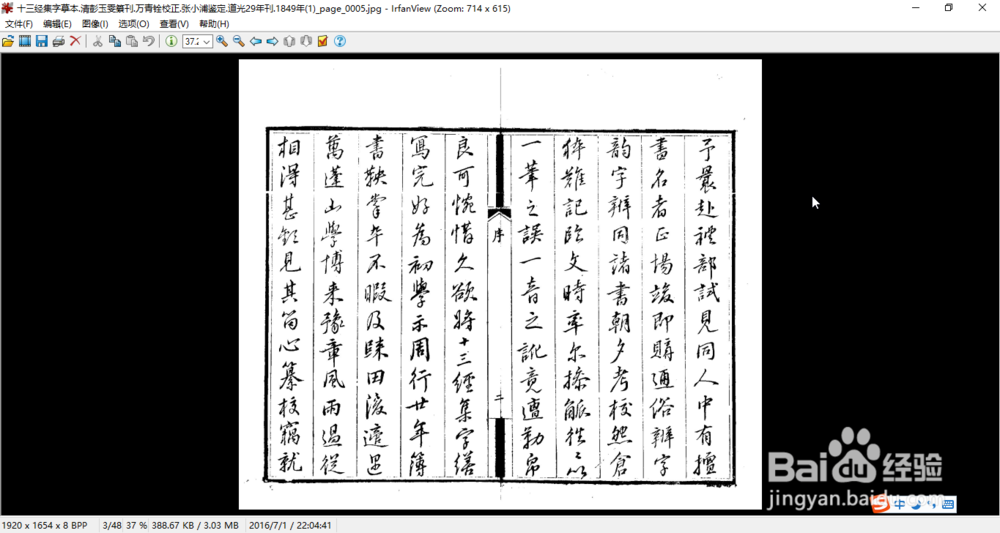 十三经集字摹本.清彭玉雯纂刊.万青铨校正.张小浦鉴定.道光29年刊.1849年(1)_page_0005.jpg - IrfanView (Zoom: 714 x 615)
文件(F) 编辑(E) 图像(I) 选项(O) 查看(V) 帮助(H)
37.
予曩赴禮部試見同人中有擅
書名者正場竣即購通俗辨字
韵字辨同諸書朝夕考校然倉
猝難記臨文時率尔操觚往々以
一筆之誤一音之訛竟遭勒帛
序
二
良可惋惜久欲將十三經集字繕
寫完好為初學示周行廿年簿
書鞅掌卒不暇及歸田後適遇
萬蓬山學博来豫章風雨過從
相得甚歡見其留心纂校竊就
Baidu 经验
jingyan.baidu.com
中
1920 x 1654 x 8 BPP 3/48 37 % 388.67 KB / 3.03 MB 2016/7/1 / 22:04:41